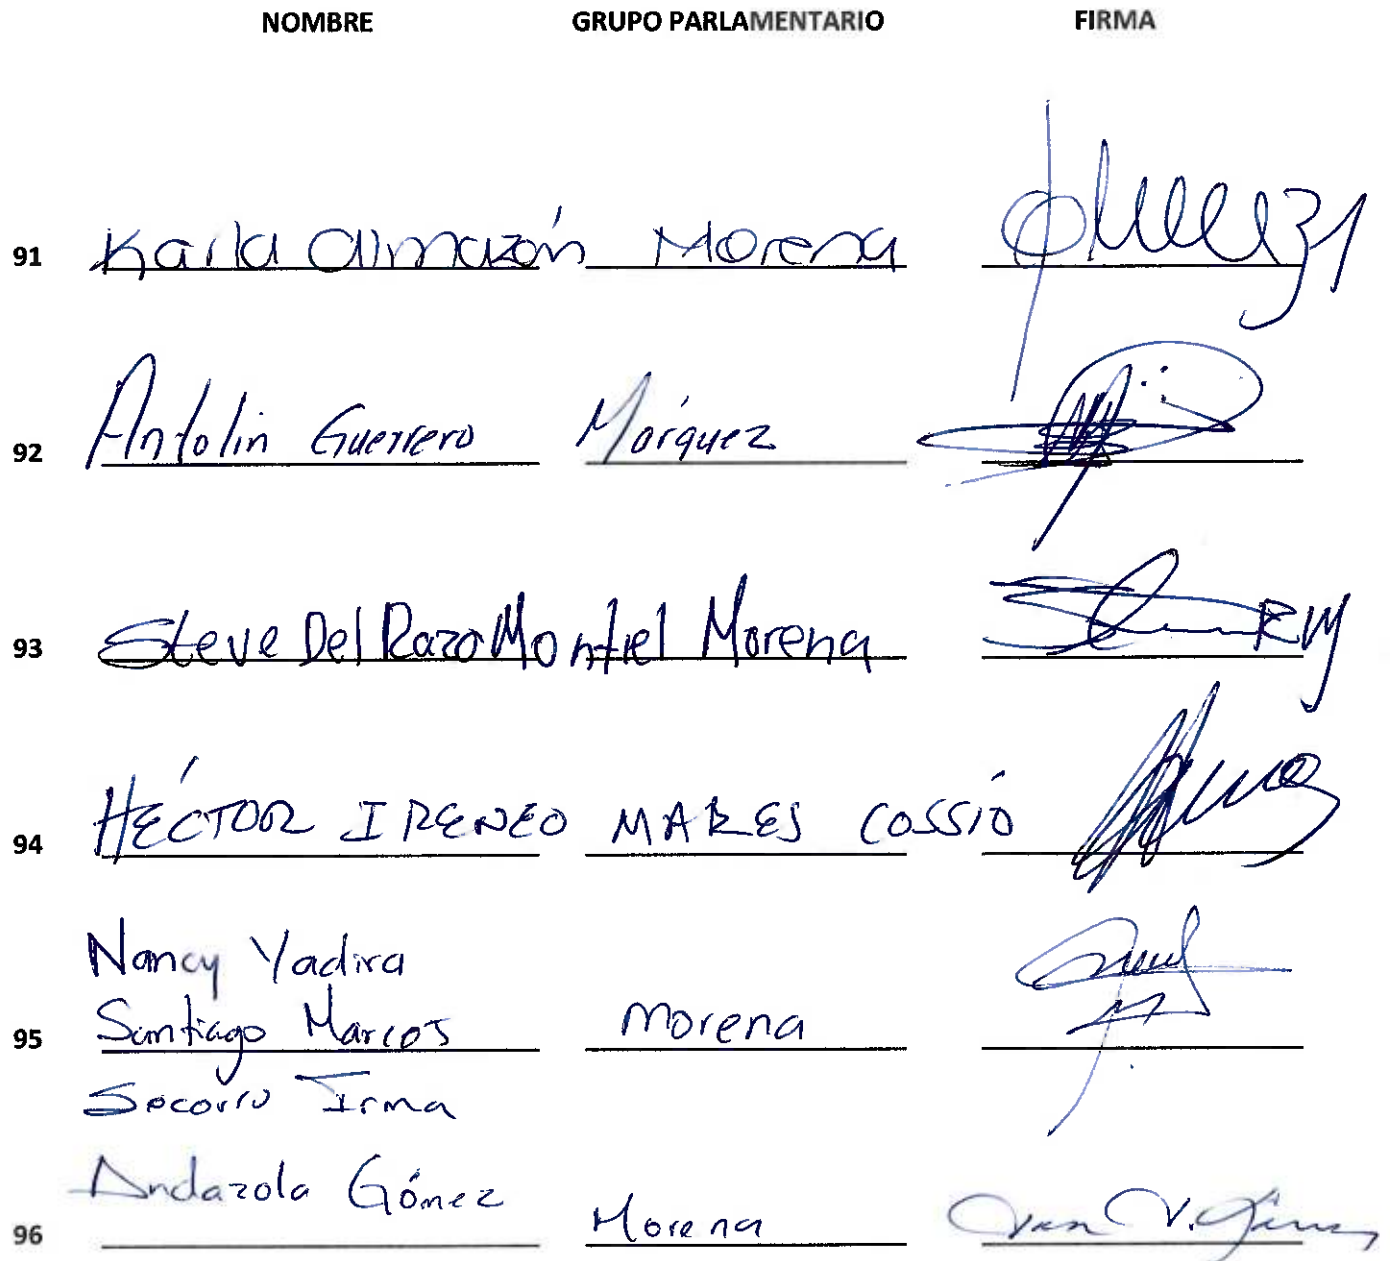 NOMBRE GRUPO PARLAMENTARIO FIRMA
91 Karla Almazán Morena
92 Antolin Guerrero Márquez
93 Steve Del Razo Montiel Morena
94 HÉCTOR IRENEO MARES COSSÍO
Nancy Yadira
95 Santiago Marcos Morena
Socorro Irma
Andazola Gómez
96 Morena